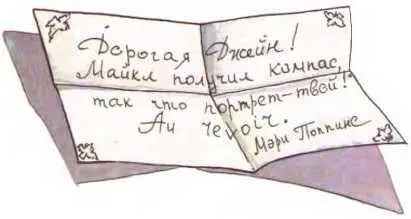 Дорогая Джейн!
Майкл получил компас,
так что портрет-твой!
Аи
Мэри Поппинс